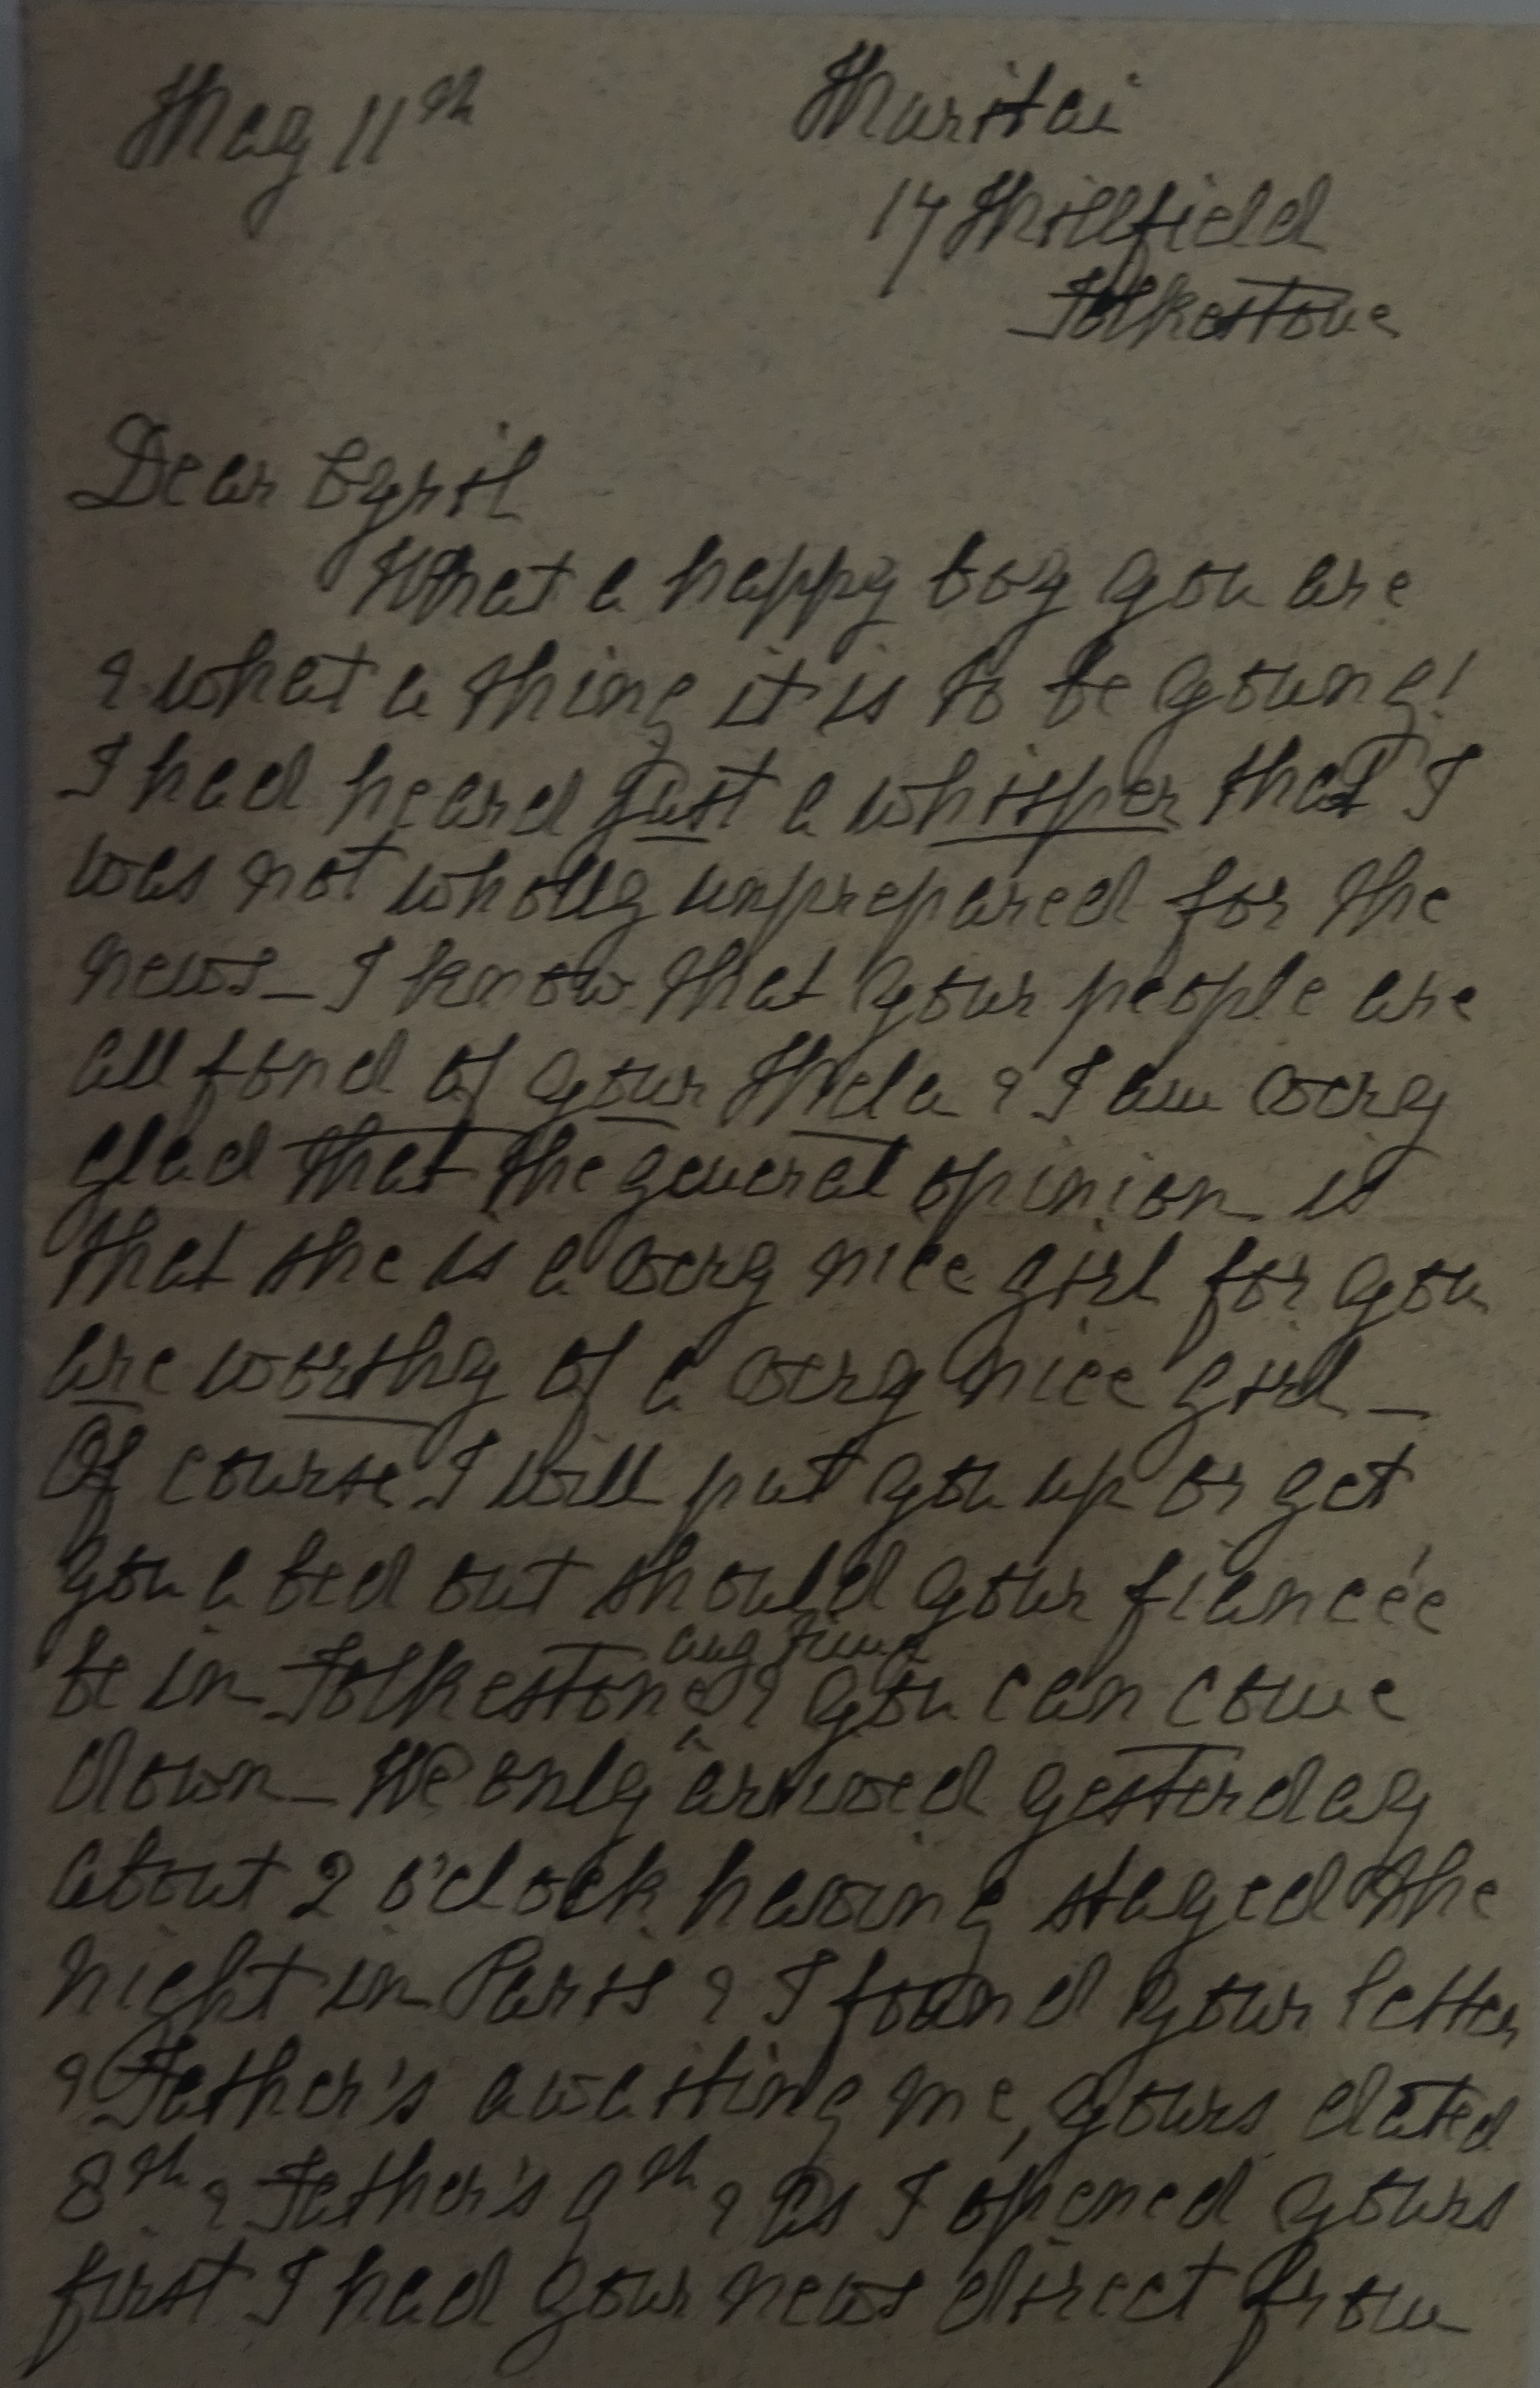 May 11th
Maritai
17 Millfield
Folkestone
Dear Cyril
What a happy boy you are
& what a thing it is to be young!
I had heard just a whisper that I
was not wholly unprepared for the
news _ I know that your people are
all fond of your & I am very
glad that the general opinion is
that she is a very nice girl for you
are worthy of a very nice girl _
Of course I will put you up or get
you a bed out should your fiancée
be in Folkestone any time & you can come
down _ We only arrived yesterday
about 2 o'clock having stayed the
night in Paris & I found your letter
& Father's awaiting me, yours dated
8th & Father's 9th & as I opened yours
first I had your news direct from